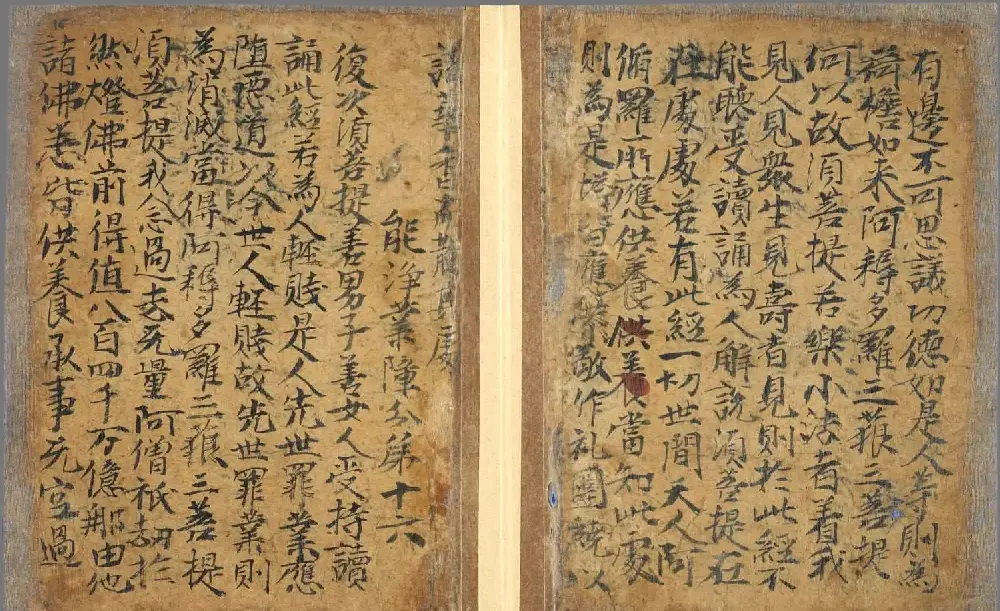 有邊不可思議功德如是人等則為
荷擔如来阿耨多羅三藐三菩提
何以故須菩提若樂小法者着我
見人見衆生見壽者見則於此經不
能聽受讀誦為人解說須菩提在
在處處若有此經一切世間天人阿
脩羅所應供養供養當知此處
則為是塔皆應恭敬作礼圍繞以
諸華香而散其處
能淨業障分第十六
復次須菩提善男子善女人受持讀
誦此經若為人輕賤是人先世罪業應
墮惡道以今世人輕賤故先世罪業則
為消滅當得阿耨多羅三藐三菩提
須菩提我念過去无量阿僧祇劫於
然燈佛前得值八百四千万億那由他
諸佛悉皆供養承事无空過